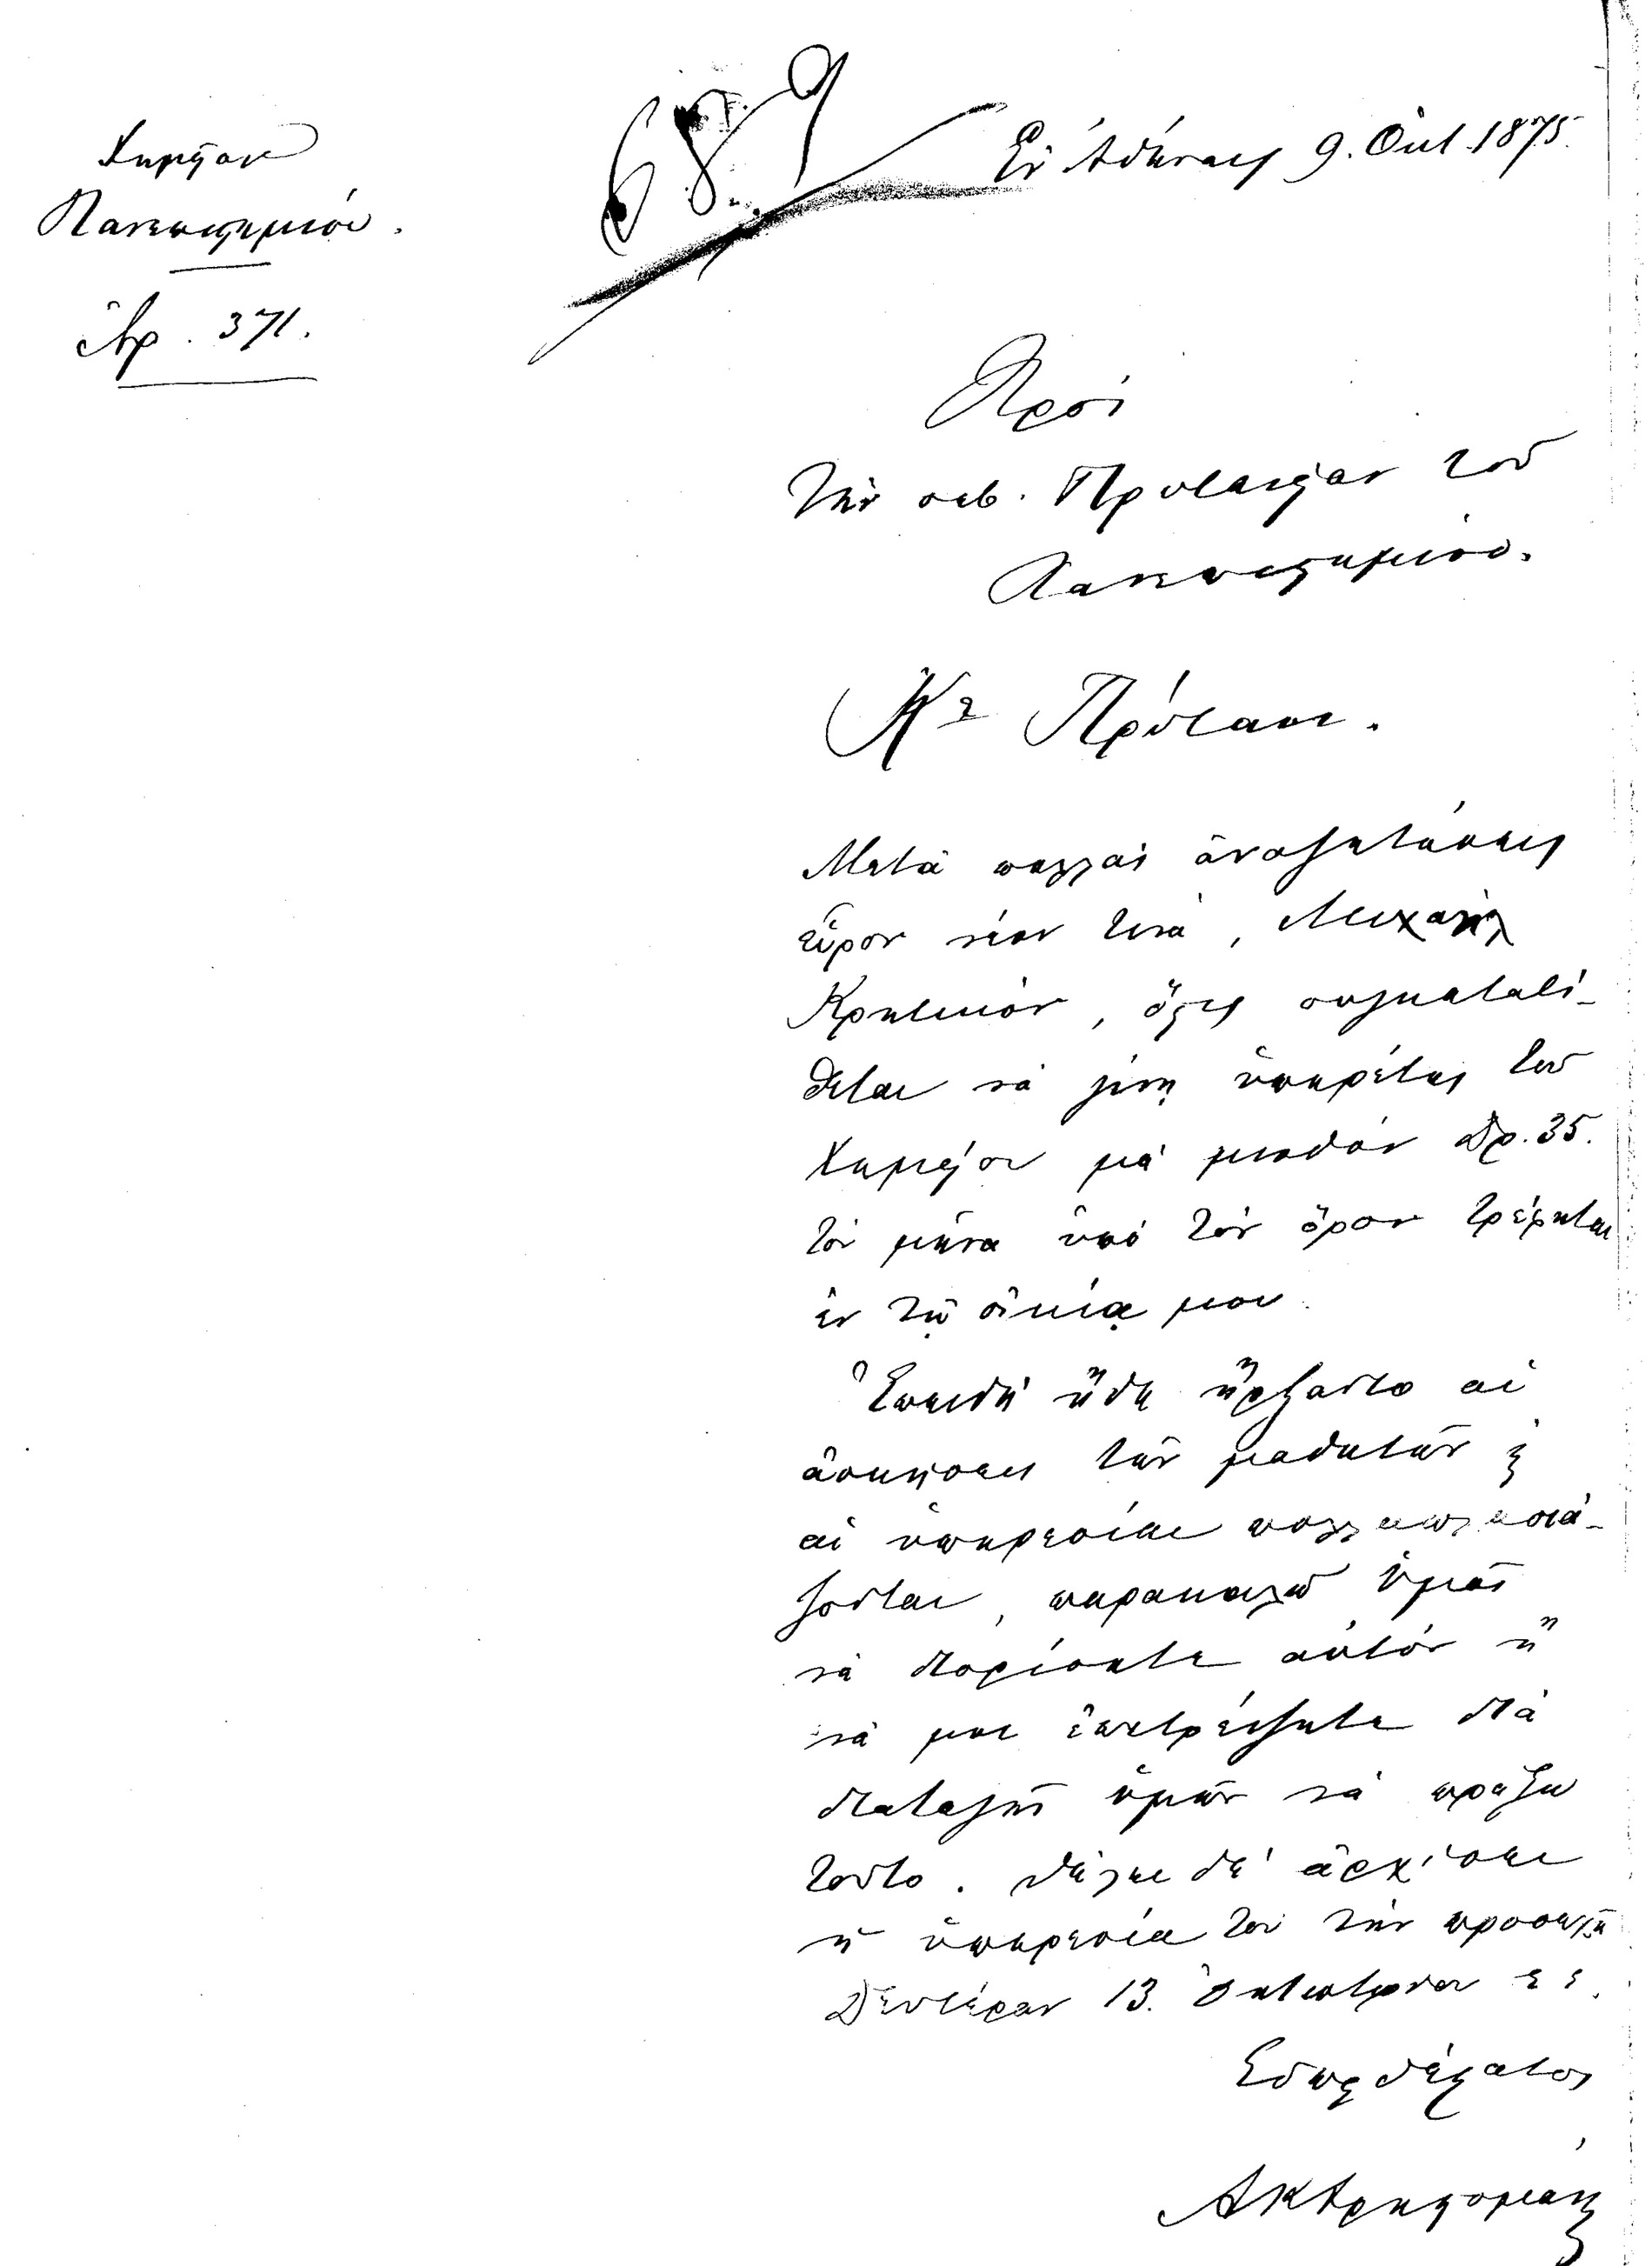 Χημεῖον
Πανεπιστημίου.
Ἀρ. 371.
689
Ἐν Ἀθήναις 9. Ὀκτ. 1875.
Πρὸς
Τὴν σεβ. Πρυτανείαν τοῦ
Πανεπιστημίου.
Κε Πρύτανι.
Μετὰ πολλὰς ἀναζητήσεις
εὗρον νέον τινὰ, Μιχαὴλ
Κρητικὸν, ὅστις συγκατατί-
θεται νὰ γίνῃ ὑπηρέτης τοῦ
Χημείου μὲ μισθὸν Δρ. 35.
τὸν μῆνα ὑπὸ τὸν ὅρον τρέφηται
ἐν τῇ οἰκίᾳ μου.
Ἐπειδὴ ἤδη ἤρξαντο αἱ
ἀσκήσεις τῶν μαθητῶν ϗ
αἱ ὑπηρεσίαι πολλαπλασιά-
ζονται, παρακαλῶ ὑμᾶς
νὰ διορίσητε αὐτὸν ἢ
νὰ μοι ἐπιτρέψητε διὰ
διαταγῆς ὑμῶν νὰ πράξω
τοῦτο. Θέλει δὲ ἀρχίσει
ἡ ὑπηρεσία του τὴν προσεχῆ
Δευτέραν 13. Ὀκτωβρίου ἐ. ἔ.
Εὐπειθέστατος
ΑΚΧρηστομάνος